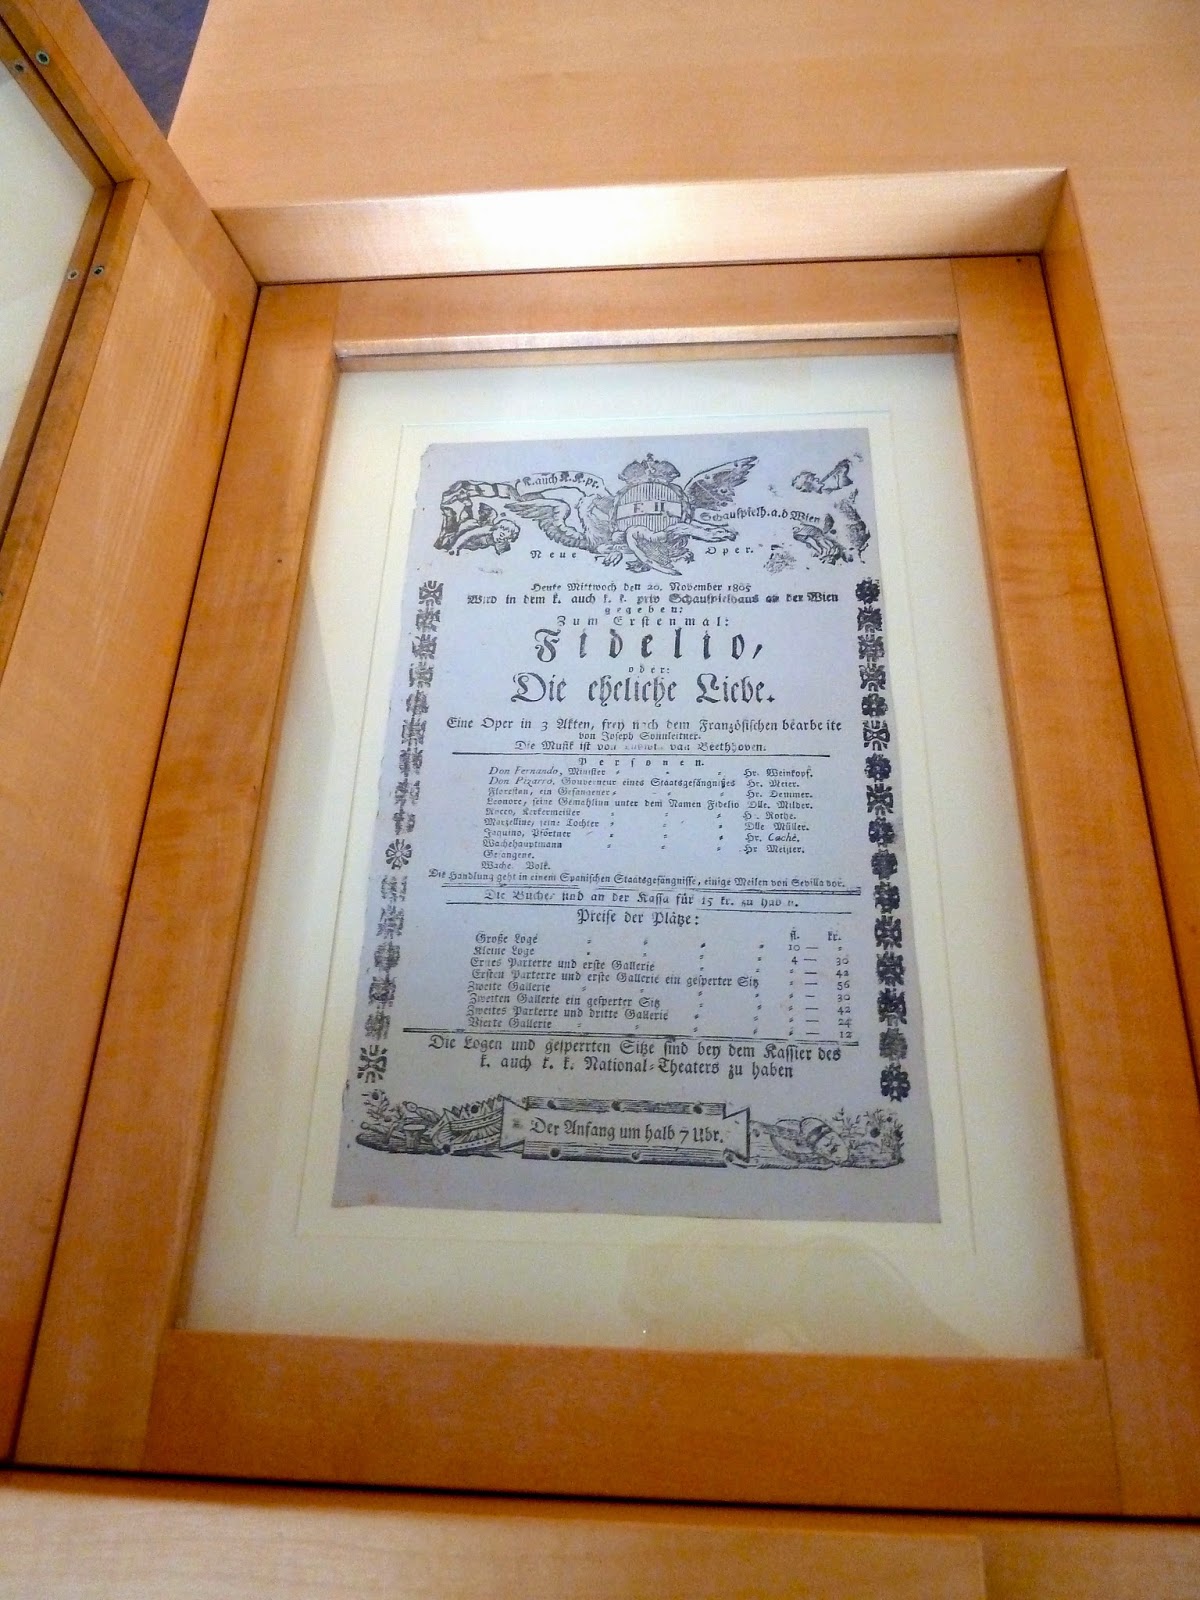 K. auch K. K. pr.
F. II.
Schauspielh. a. d Wien
Neue Oper.
Heute Mittwoch den 20. November 1805
Wird in dem k. auch k. k. priv Schauspielhaus an der Wien
gegeben:
Zum Erstenmal:
Fidelio,
oder:
Die eheliche Liebe.
Eine Oper in 3 Akten, frey nach dem Französischen bearbeite
von Joseph Sonnleitner.
Die Musik ist von van Beethhoven.
Personen.
Don Fernando, Minister Hr. Weinkopf.
Don Pizarro, Gouverneur eines Staatsgefängnißes Hr. Meier.
Florestan, ein Gefangener Hr. Demmer.
Leonore, seine Gemahlinn unter dem Namen Fidelio Dlle. Milder.
Rocco, Kerkermeister Hr. Rothe.
Marzelline, seine Tochter Dlle Müller.
Jaquino, Pförtner Hr. Caché.
Wachehauptmann Hr Meister.
Gefangene.
Wache. Volk.
Die Handlung geht in einem Spanischen Staatsgefängnisse, einige Meilen von Sevilla vor.
Die Bücher sind an der Kassa für 15 kr. zu haben.
Preise der Plätze:
fl. kr.
Große Loge 10 —
Kleine Loge 4 — 30
Erstes Parterre und erste Gallerie — 42
Ersten Parterre und erste Gallerie ein gesperter Sitz — 56
Zweite Gallerie — 30
Zweiten Gallerie ein gesperter Sitz — 42
Zweites Parterre und dritte Gallerie — 24
Vierte Gallerie — 12
Die Logen und gesperrten Sitze sind bey dem Kassier des
k. auch k. k. National-Theaters zu haben
Der Anfang um halb 7 Uhr.